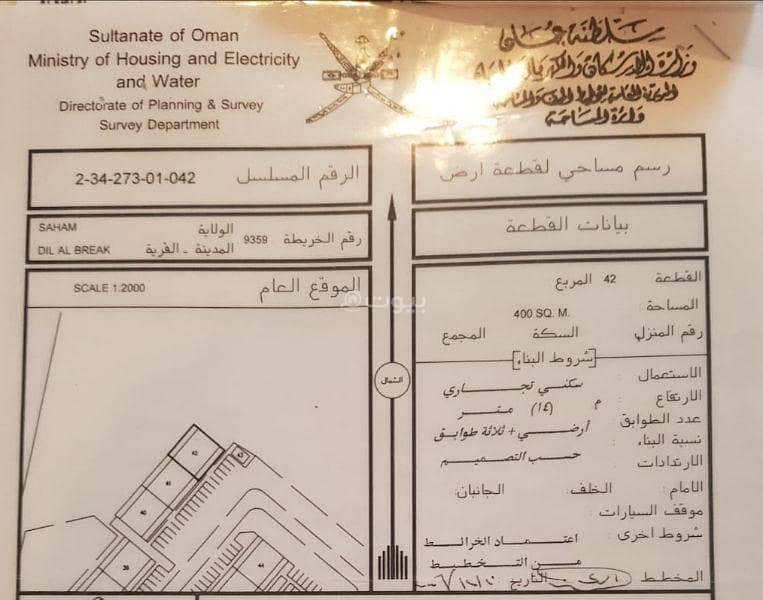 Sultanate of Oman
Ministry of Housing and Electricity
and Water
Directorate of Planning & Survey
Survey Department
سلطنة عمان
وزارة الاسكان والكهرباء
دائرة المساحة
رسم مساحي لقطعة ارض
الرقم المسلسل 2-34-273-01-042
بيانات القطعة
SAHAM الولاية
رقم الخريطة 9359
DIL AL BREAK المدينة - القرية
الموقع العام SCALE 1:2000
القطعة 42 المربع
المساحة 400 SQ. M.
رقم المنزل السكة المجمع
شروط البناء
الاستعمال : سكني تجاري
الارتفاع : م (١٤) متر
عدد الطوابق : أرضي + ثلاثة طوابق
نسبة البناء :
الارتدادات : حسب التصميم
الامام : الخلف : الجانبان :
موقف السيارات :
شروط اخرى : اعتماد الخرائط
من التخطيط
المخطط التاريخ
الشمال
42
43
41
40
39
44
بيوت